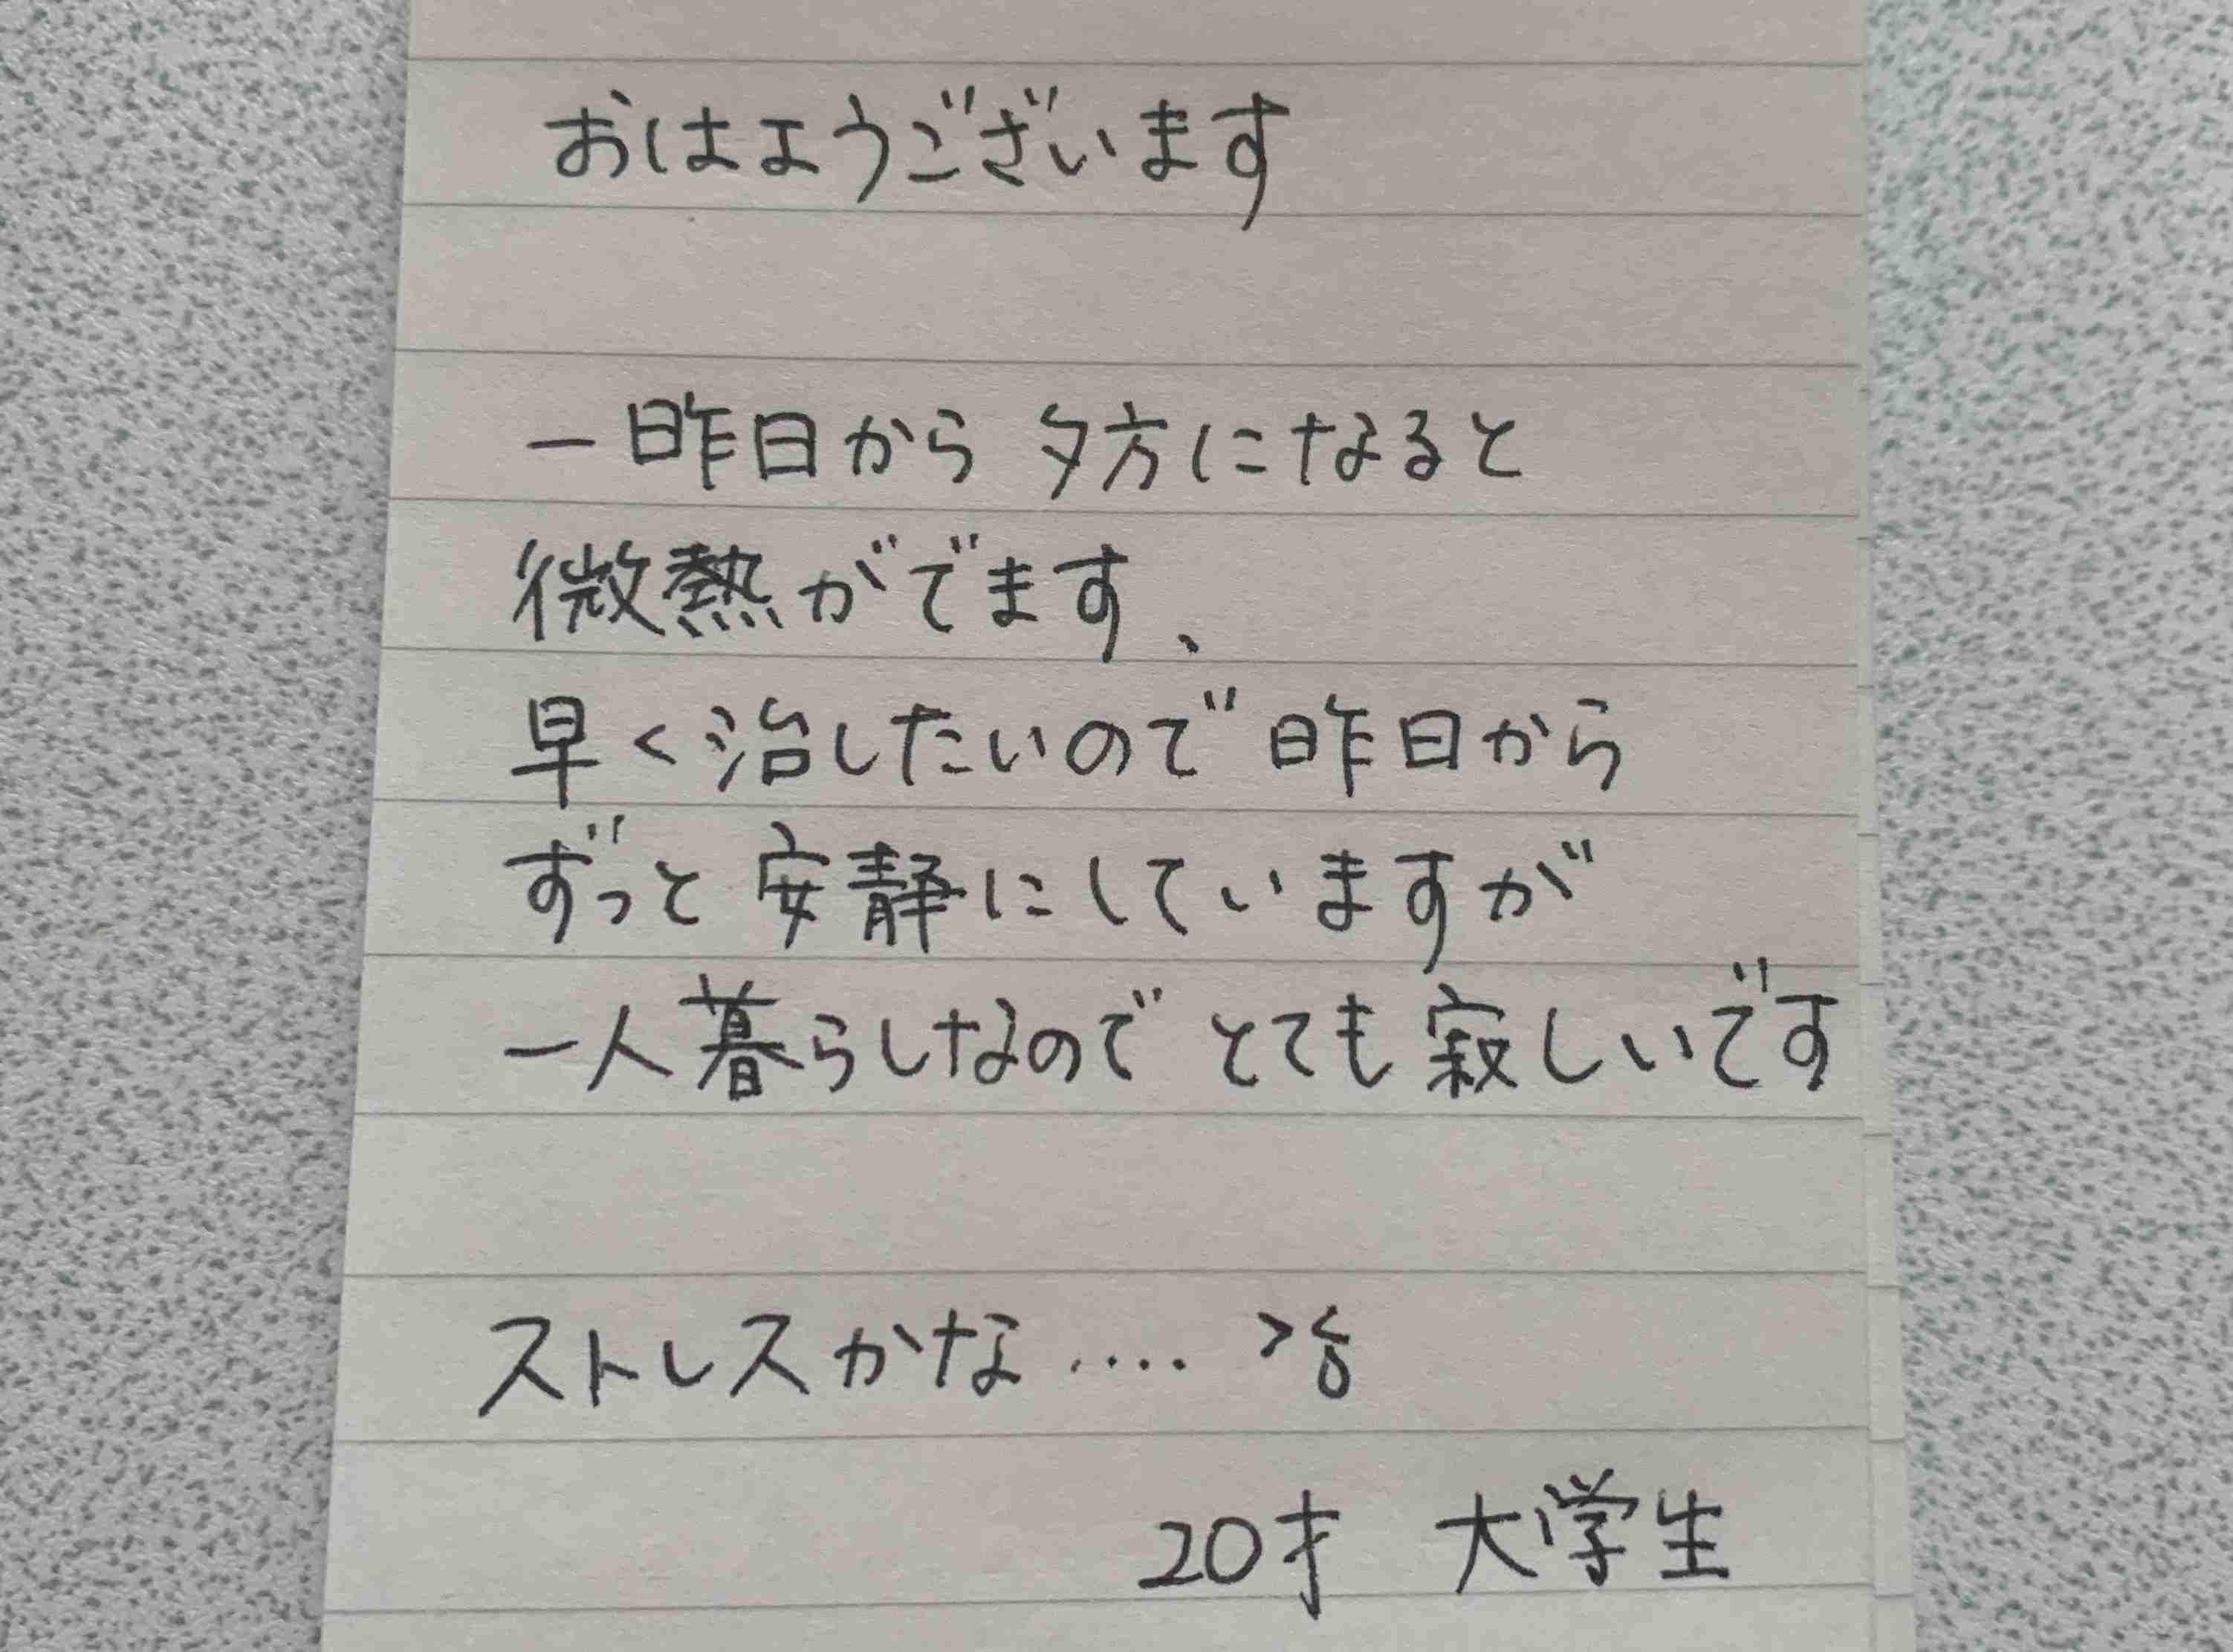 おはようございます
一昨日から 夕方になると
微熱がでます、
早く治したいので 昨日から
ずっと 安静にしていますが
一人暮らしなので とても 寂しいです
ストレスかな....
20才 大学生